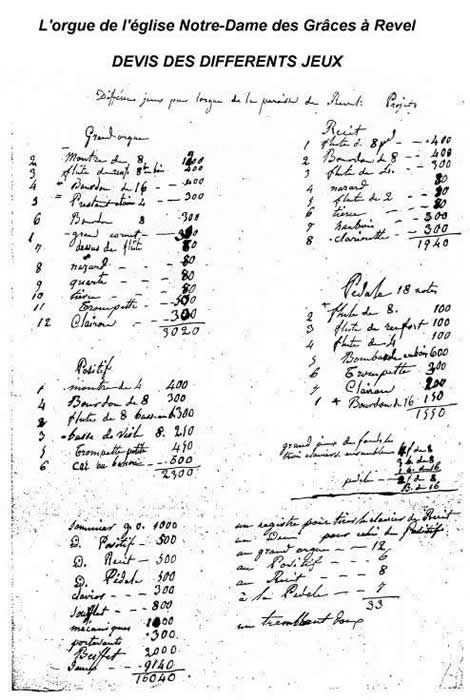 L'orgue de l'église Notre-Dame des Grâces à Revel
DEVIS DES DIFFERENTS JEUX
Différens jeux pour l'orgue de la paroisse de Revel. Projets
Grand orgue
2 Montre de 8. 1200
3 flute de 8 400
4 Bourdon de 16 400
5 Prestant 4 300
6 Bourdon 8 300
1 grand cornet 300
7 dessus de flûte 80
8 nazard 80
9 quarte 80
10 tierce 80
11 Trompette 500
12 Clairon 300
3020
Positif
1 montre de 4 400
4 Bourdon de 8 300
2 flute de 8 300
3 basse de viole 8. 250
5 Trompette petite 450
6 500
2300
Récit
1 flute de 8 pd 400
2 Bourdon de 8 400
3 flute de 4. 300
4 nazard 80
5 flute de 2 80
6 tierce 80
7 hautbois 300
8 clarinette 300
1940
Pédale 18 notes
2 flute de 8. 100
3 flute de renfort 100
4 flute de 4 100
5 Bombarde en bois 600
6 Trompette 300
7 Clairon 200
1 Bourdon de 16 150
1550
grand jeux de fonds les
trois claviers ensemble 4 f de 8
3 4 de 8
1 4 de 16
pédale 2 f de 8
B. de 16
sommier g.o. 1000
D. Positif 500
D. Recit 500
D. Pédale 500
clavier 300
soufflet 800
mécaniques 1000
postevants 300
Buffet 2000
Jeux 9140
16040
un registre pour tirer le clavier du Recit
un Idem pour celui du Positif
au grand orgue 12
au Positif 6
au Recit 8
à la Pédale 7
33
un tremblant doux